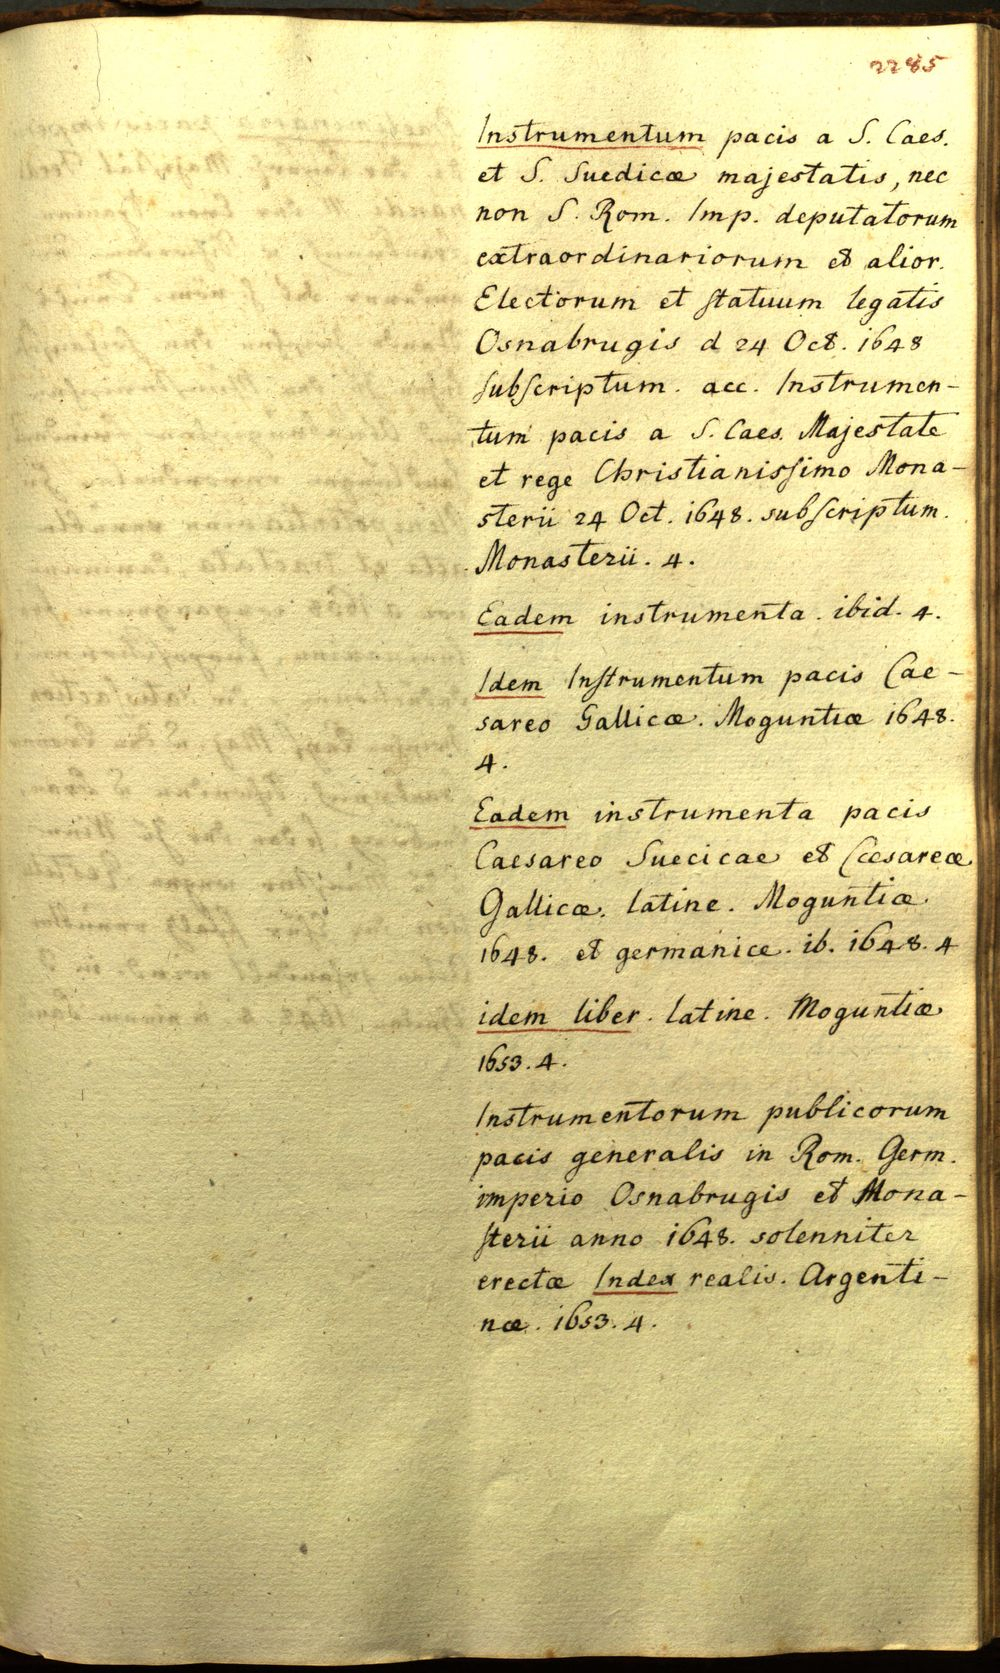 2285
Instrumentum pacis a S. Caes.
et S. Suedicæ majestatis, nec
non S. Rom. Imp. deputatorum
extraordinariorum et alior.
Electorum et ſtatuum legatis
Osnabrugis d 24 Oct. 1648
ſubſcriptum. acc. Instrumen-
tum pacis a S. Caes. Majestate
et rege Christianisſimo Mona-
sterii 24 Oct. 1648. subſcriptum.
Monasterii. 4.
Eadem instrumenta. ibid. 4.
Idem Inſtrumentum pacis Cae-
sareo Gallicæ. Moguntiæ 1648.
4.
Eadem instrumenta pacis
Caesareo Suecicae et Cæsareæ
Gallicæ. latine. Moguntiæ
1648. et germanice. ib. 1648. 4
idem liber. latine. Moguntiæ
1653. 4.
Instrumentorum publicorum
pacis generalis in Rom. Germ.
imperio Osnabrugis et Mona-
ſterii anno 1648. solenniter
erectæ Index realis. Argenti-
næ. 1653. 4.